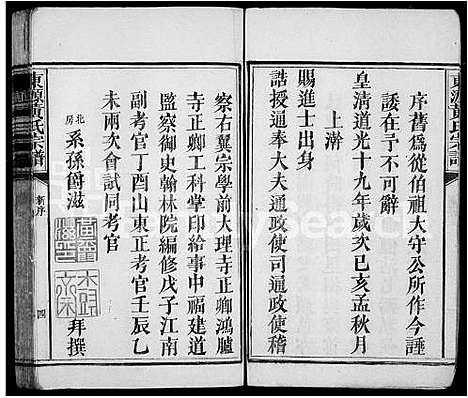 東源黄氏宗譜
序舊爲從伯祖大守公所作今諈
諉在予不可辭
皇清道光十九年歲次己亥孟秋月
上澣
賜進士出身
誥授通奉大夫通政使司通政使稽
察右翼宗學前大理寺正卿鴻臚
寺正卿工科掌印給事中福建道
監察御史翰林院編修戊子江南
副考官丁酉山東正考官壬辰乙
未兩次會試同考官
北房系孫爵滋
拜撰
東源黄氏宗譜
新序
四